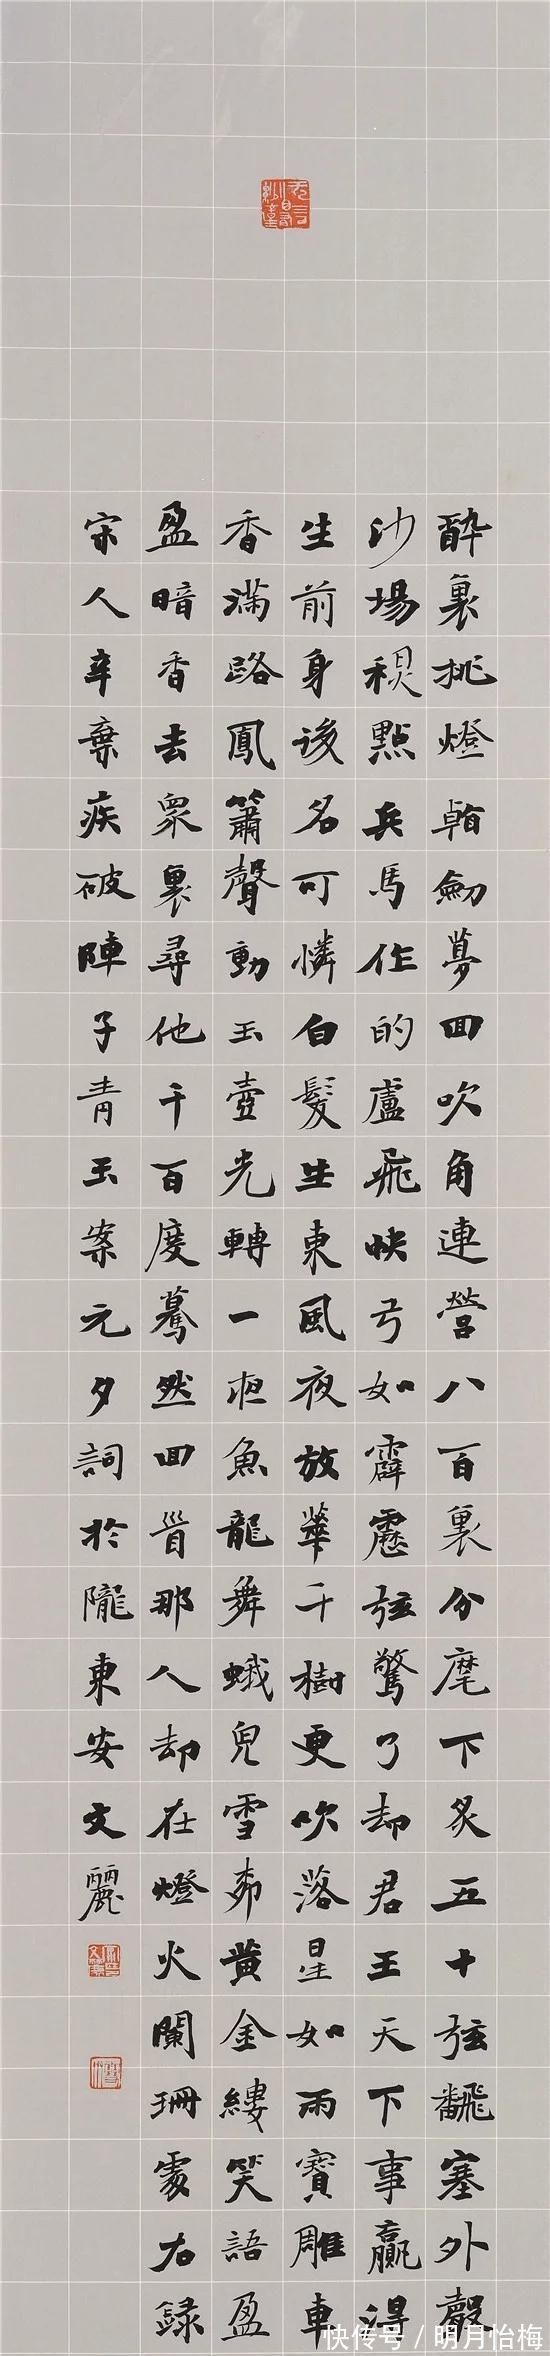 醉裏挑燈看劍夢回吹角連營八百裏分麾下炙五十弦飜塞外聲
沙場秋點兵馬作的盧飛快弓如霹靂弦驚了却君王天下事贏得
生前身後名可憐白髮生東風夜放華千樹更吹落星如雨寶雕車
香滿路鳳簫聲動玉壺光轉一夜魚龍舞蛾兒雪柳黃金縷笑語盈
盈暗香去衆裏尋他千百度驀然回首那人却在燈火闌珊處右録
宋人辛棄疾破陣子青玉案元夕詞於隴東安文麗
快传号 / 明月怡梅